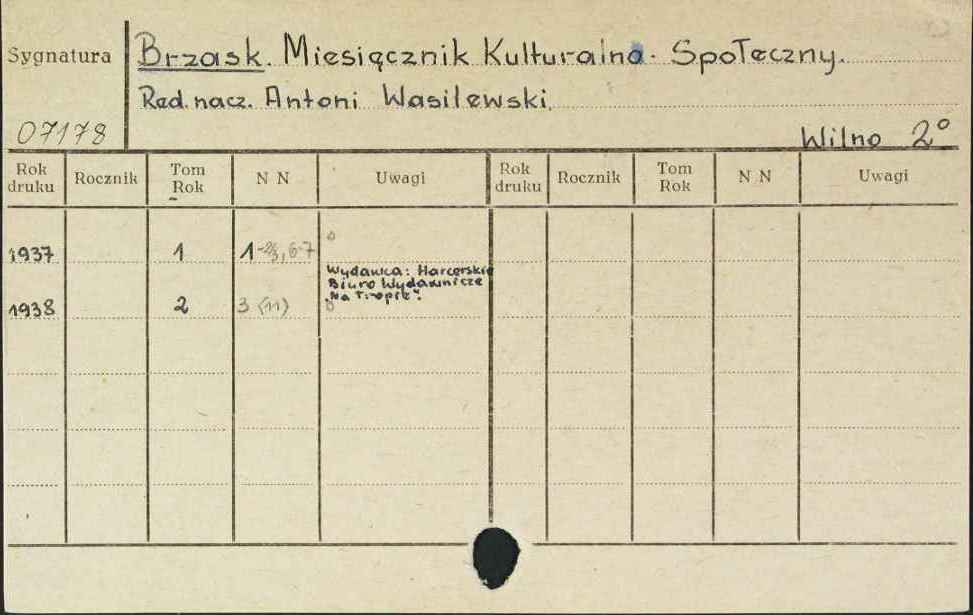 Sygnatura
Brzask. Miesięcznik Kulturalno-Społeczny.
Red. nacz. Antoni Wasilewski.
07178
Wilno 2°
Rok druku Rocznik Tom Rok N N Uwagi Rok druku Rocznik Tom Rok N N Uwagi
1937 1 1-2/3, 6-7
Wydawca: Harcerskie
Biuro Wydawnicze
„Na Tropie".
1938 2 3 (11)